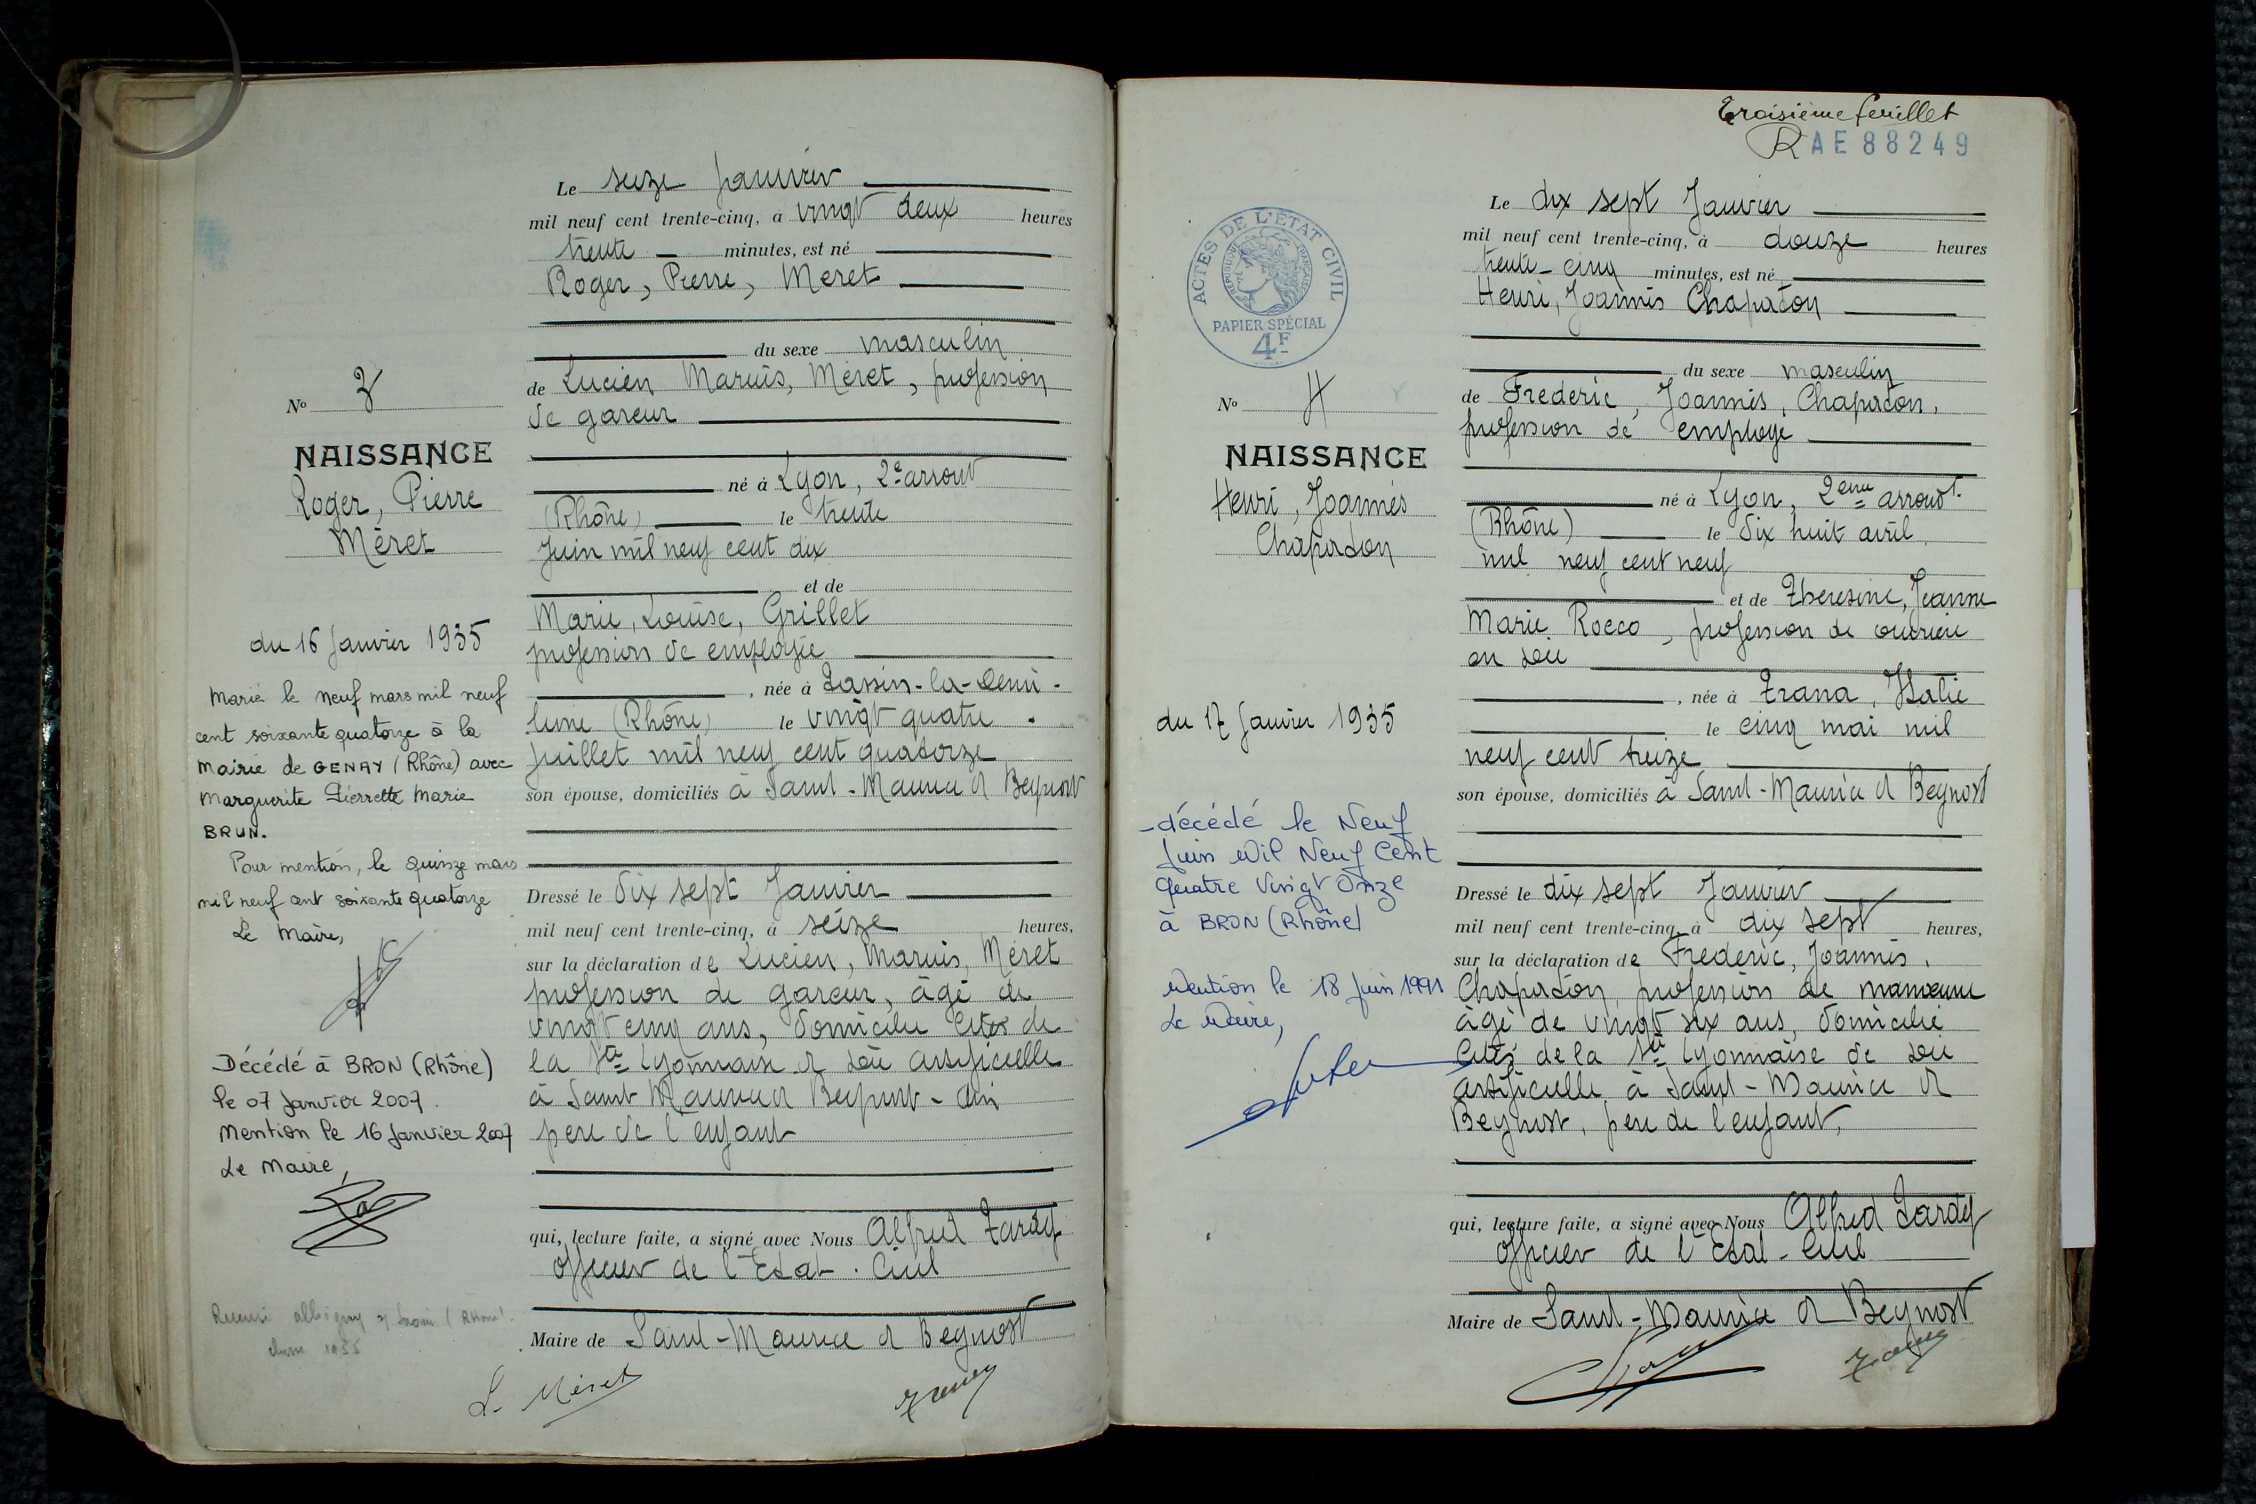 Le seize Janvier
mil neuf cent trente-cinq, à vingt deux heures
trente minutes, est né
Roger, Pierre, Méret
du sexe masculin
de Lucien Marius, Méret, profession
de gareur
né à Lyon, 2e arront
(Rhône) le trente
Juin mil neuf cent dix
et de
Marie, Louise, Grillet
profession de employée
, née à Tassin-la-Demi-
lune (Rhône) le vingt quatre
Juillet mil neuf cent quatorze
son épouse, domiciliés à Saint-Maurice d Beynost
Dressé le dix sept Janvier
mil neuf cent trente-cinq, à seize heures,
sur la déclaration de Lucien, Marius, Méret
profession de gareur, âgé de
vingt cinq ans, domicilié Cités de
la Sté Lyonnaise d soie artificielle
à Saint Maurice d Beynost - Ain
père de l'enfant
qui, lecture faite, a signé avec Nous Alfred Tardy
officier de l'Etat-Civil
Maire de Saint-Maurice d Beynost
L. Méret
No 3
NAISSANCE
Roger, Pierre
Méret
du 16 Janvier 1935
Marié le neuf mars mil neuf
cent soixante quatorze à la
Mairie de GENAY (Rhône) avec
Marguerite Pierrette Marie
BRUN.
Pour mention, le quinze mars
mil neuf cent soixante quatorze
Le Maire,
Décédé à BRON (Rhône)
le 07 Janvier 2007.
Mention le 16 Janvier 2007
Le Maire,
Troisième feuillet
R AE 88249
ACTES DE L'ÉTAT CIVIL
RÉPUBLIQUE FRANÇAISE
PAPIER SPÉCIAL
4F
No 4
NAISSANCE
Henri, Joannès
Chapadon
du 17 Janvier 1935
-décédé le Neuf
Juin Mil Neuf Cent
Quatre Vingt Onze
à BRON (Rhône)
Mention le 18 Juin 1991
Le Maire,
Le dix sept Janvier
mil neuf cent trente-cinq, à douze heures
trente-cinq minutes, est né
Henri, Joannès Chapadon
du sexe masculin
de Frédéric, Joannès, Chapadon,
profession de employé
né à Lyon, 2ème arrondt.
(Rhône) le dix huit avril
mil neuf cent neuf
et de Theresine, Jeanne
Marie Rocco, profession de ouvrière
en soie
, née à Trana, Italie
le cinq mai mil
neuf cent treize
son épouse, domiciliés à Saint-Maurice d Beynost
Dressé le dix sept Janvier
mil neuf cent trente-cinq, à dix sept heures,
sur la déclaration de Frédéric, Joannès,
Chapadon, profession de manoeuvre
âgé de vingt six ans, domicilié
Cités de la Sté Lyonnaise de soie
artificielle à Saint-Maurice d
Beynost, père de l'enfant,
qui, lecture faite, a signé avec Nous Alfred Tardy
officier de l'Etat-Civil
Maire de Saint-Maurice d Beynost